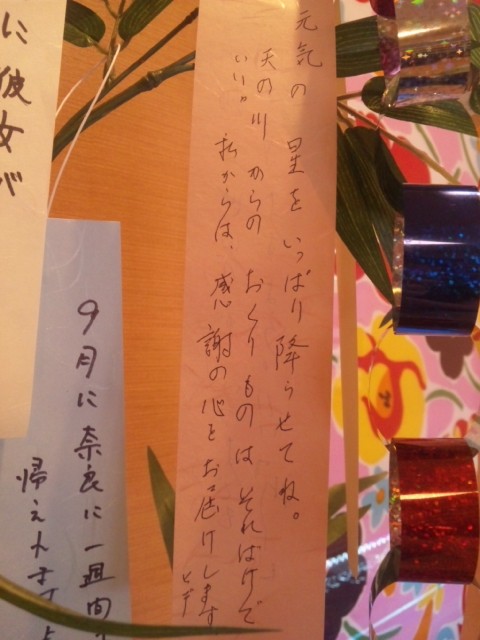 元気の星をいっぱい降らせてね。
天の川からのおくりものはそれだけで
いい。私からは、感謝の心をお届けします
ヒデ
9月に奈良に一週間
帰え
に彼女が